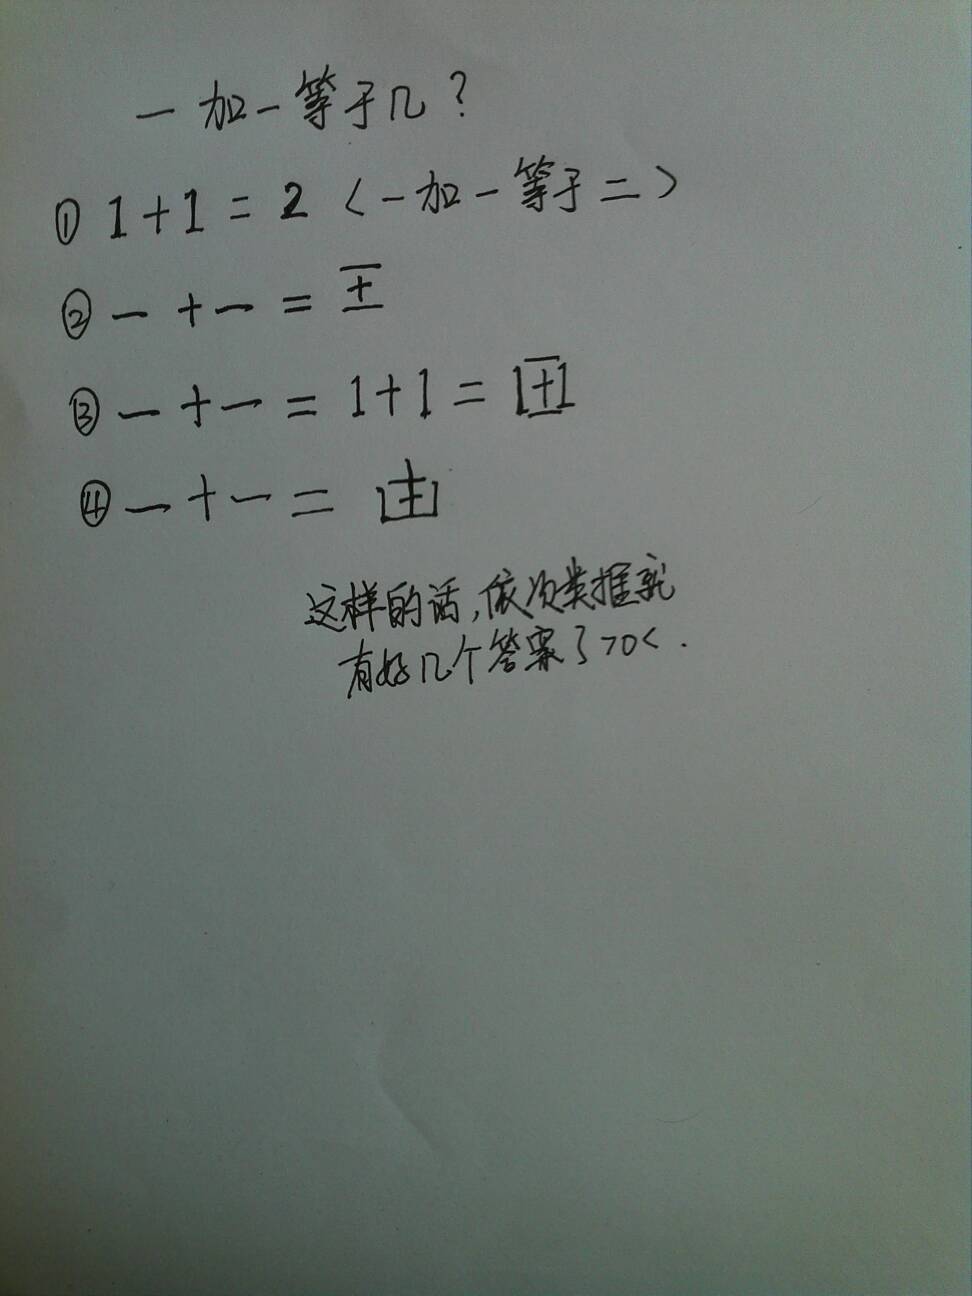 一加一等于几?
① 1+1=2 <一加一等于二>
② 一+一=王
③ 一+一=1+1=田
④ 一+一=由
这样的话,依次类推就
有好几个答案了>o<.